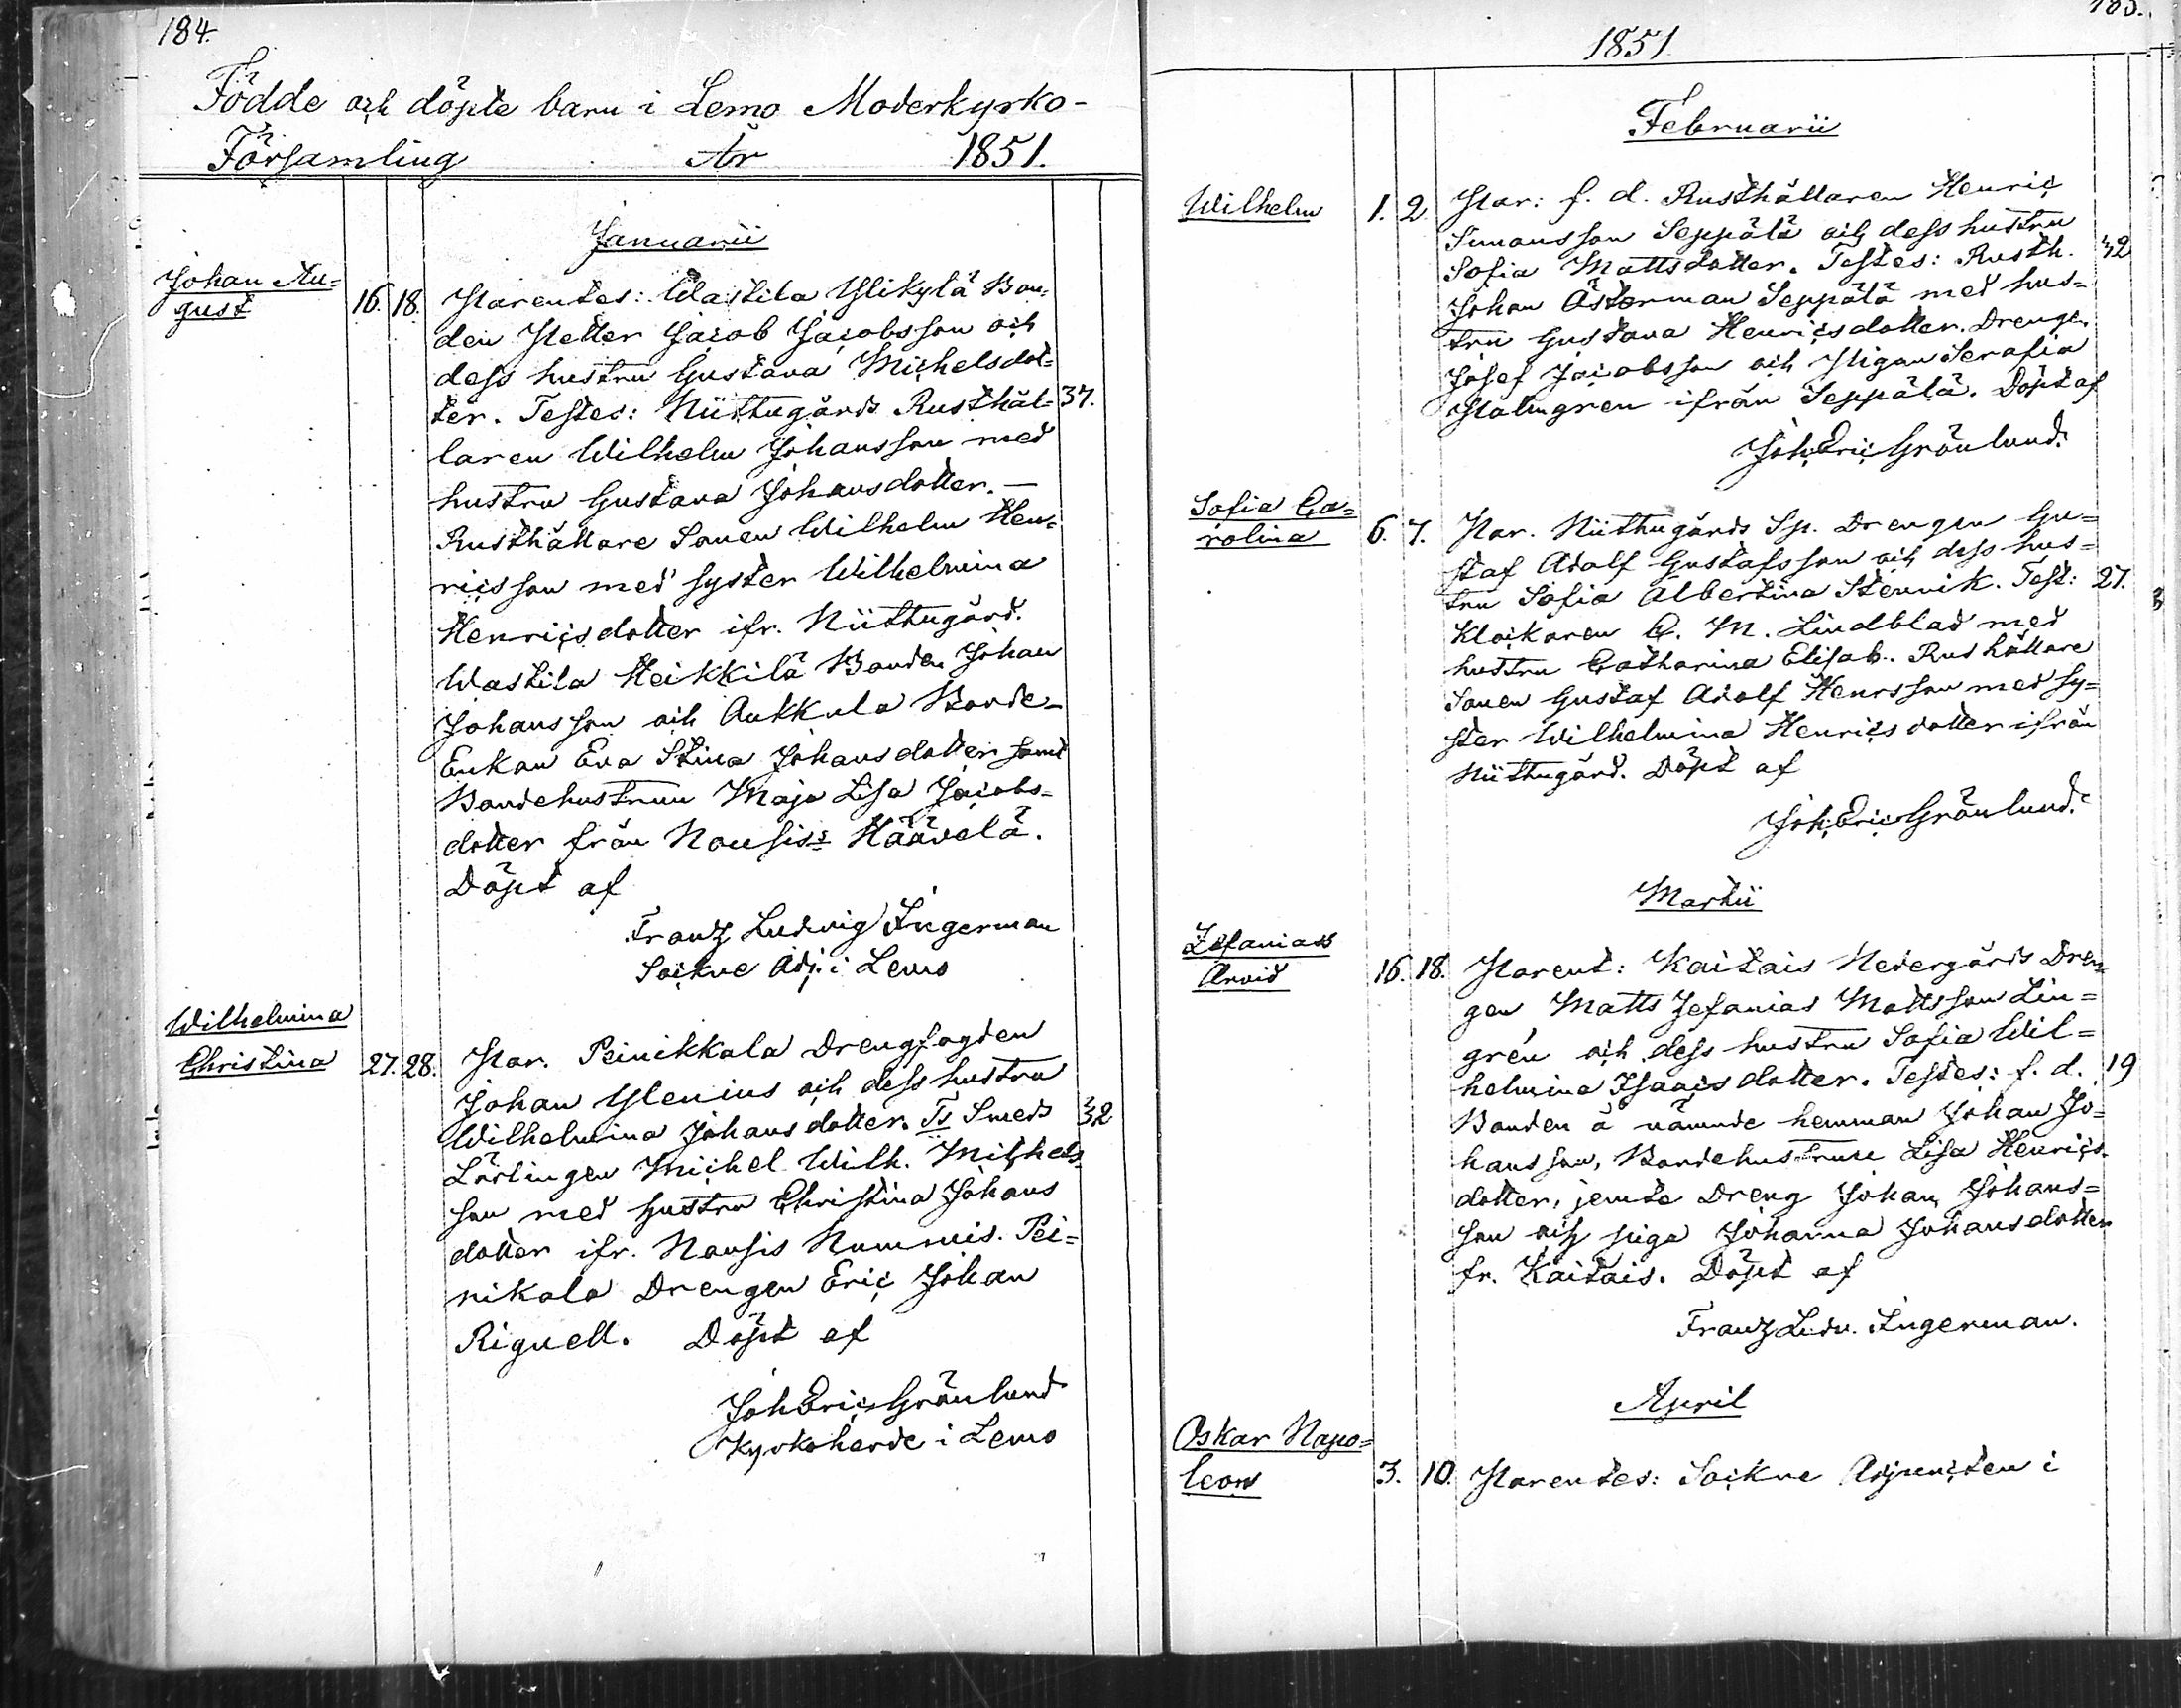 184.
Födde och döpte barn i Lemo Moderkyrko-
Församling År 1851.
Januarii
Johan Au=
gust
16. 18. Parentes: Wastila Ylikylä Bon=
den Petter Jacob Jacobsson och
dess hustru Gustava Michelsdot=
ter. Testes: Niittugårds Rusthål= 37.
laren Wilhelm Johansson med
hustru Gustava Johansdotter. —
Rusthållare Sonen Wilhelm Hen=
ricsson med syster Wilhelmina
Henricsdotter ifr. Niittugård.
Wastila Heikkilä Bonden Johan
Johansson och Aukkula Bonde-
Enkan Eva Stina Johansdotter samt
Bondehustrun Maja Lisa Jacobs=
dotter från Nousis Häävelä.
Döpt af
Franz Ludvig Ingerman
Sockne Adj. i Lemo
Wilhelmina
Christina 27. 28. Par. Peinikkala Drengfogden
Johan Glenius och dess hustru
Wilhelmina Johansdotter. Ts Smeds 32
Lärlingen Michel Wilh. Michels
son med hustru Christina Johans
dotter ifr. Nousis Nummis. Pei=
nikala Drengen Eric Johan
Rignell. Döpt af
Joh Eric Grönlund
Kyrkoherde i Lemo
185.
1851
Februarii
Wilhelm 1. 2. Par: f. d. Rusthållaren Henric
Simonsson Seppälä och dess hustru
Sofia Mattsdotter. Testes: Rusth. 42
Johan Österman Seppälä med hus=
tru Gustava Henricsdotter. Dreng.
Josef Jacobsson och Pigan Serafia
Malmgren ifrån Seppälä. Döpt af
Joh Eric Grönlund.
Sofia Ca=
rolina 6. 7. Par. Niittugårds Sp. Drengen Gu=
staf Adolf Gustafsson och dess hus=
tru Sofia Albertina Stenvik. Test: 27.
Klockaren C. M. Lindblad med
hustru Catharina Elisab. Rushållare
Sonen Gustaf Adolf Henrsson med sy=
ster Wilhelmina Henricsdotter ifrån
Niittugård. Döpt af
Joh. Eric Grönlund.
Martii
Zefanias
Arvid 16. 18. Parent: Kaitais Nedergårds Dren=
gen Matts Zefanias Mattsson Lin=
grén och dess hustru Sofia Wil=
helmina Isaacsdotter. Testes: f. d. 19
Bonden å nämnde hemman Johan Jo=
hansson, Bondehustrun Lisa Henrics=
dotter, jemte Dreng Johan Johans=
son och piga Johanna Johansdotter
fr. Kaitais. Döpt af
Franz Ludv. Ingerman.
April
Oskar Napo=
leon 3. 10. Parentes: Sockne Adjuncten i